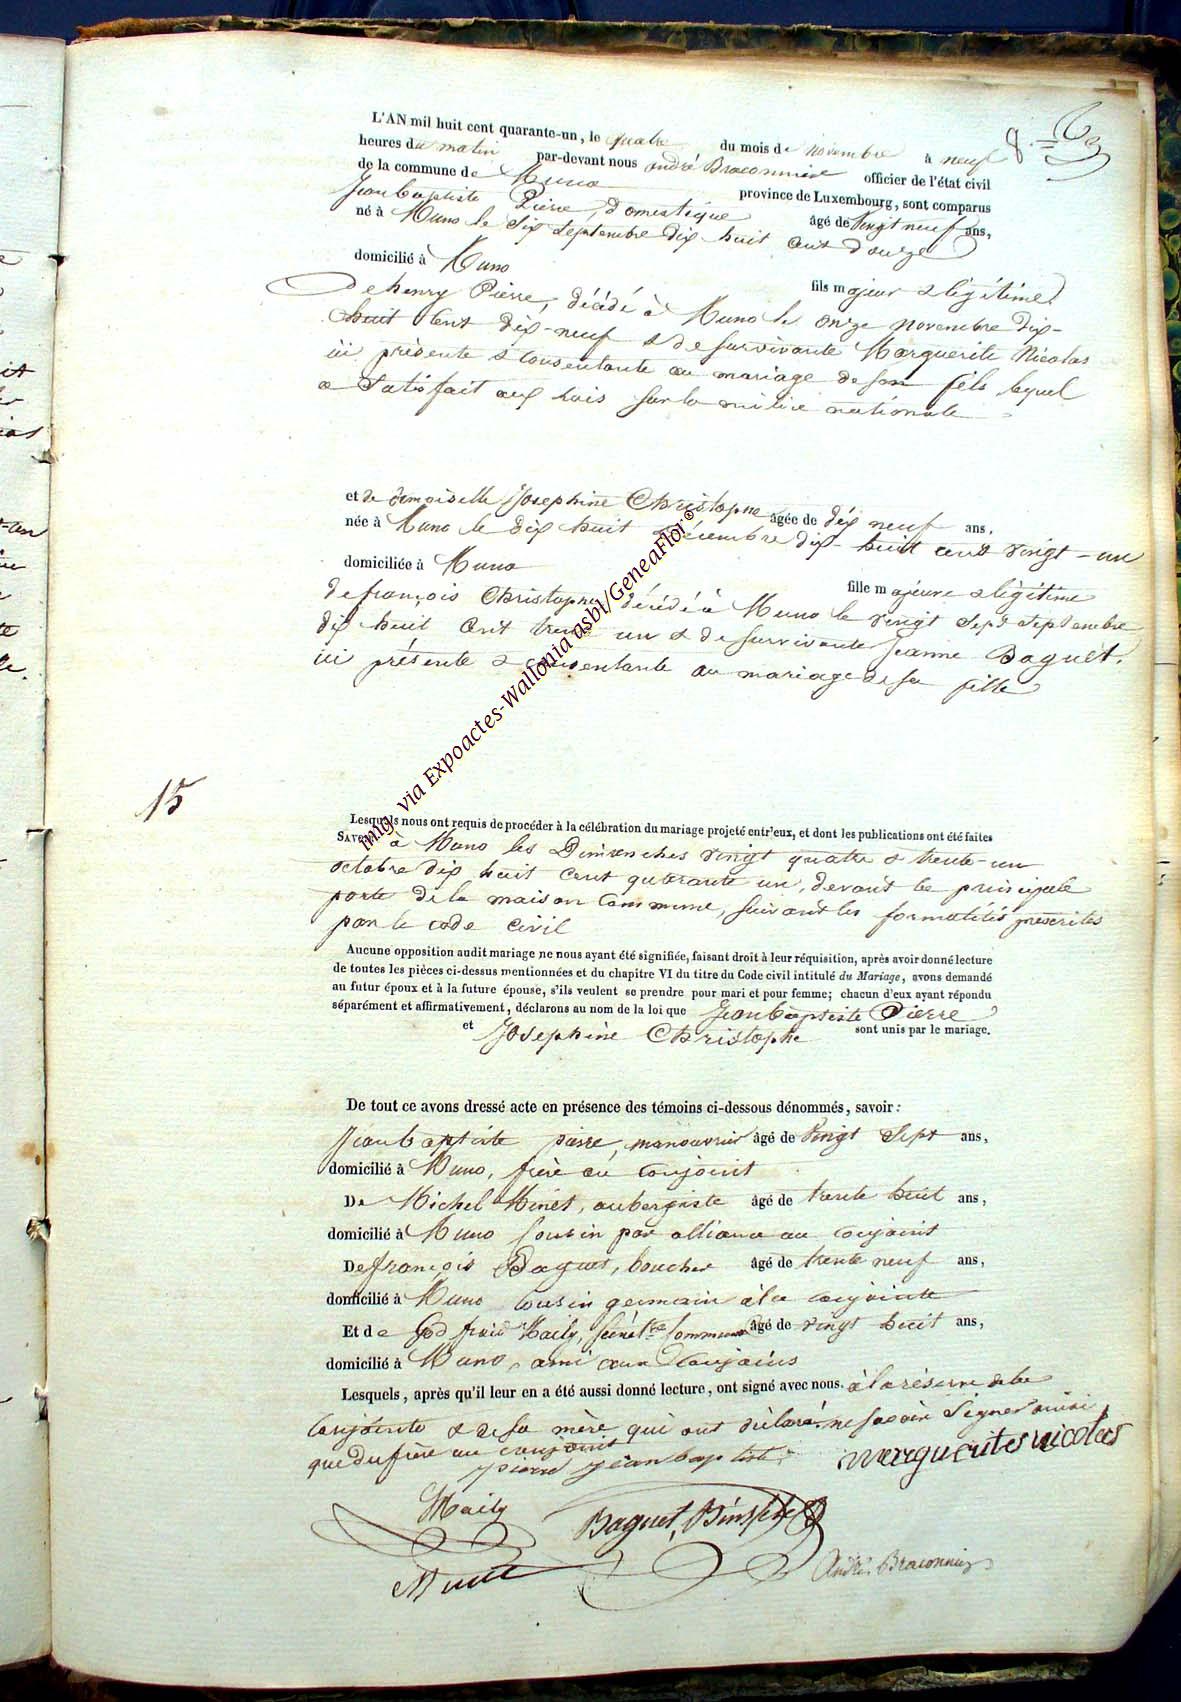 L'AN mil huit cent quarante-un, le quatre du mois de novembre à neuf
heures du matin par-devant nous andré Braconnier officier de l'état civil
de la commune de Muno province de Luxembourg, sont comparus
Jean baptiste Pierre, domestique âgé de vingt neuf ans,
né à Muno le six septembre dix huit cent douze
domicilié à Muno fils majeur & légitime
de henry Pierre, décédé à Muno le onze novembre dix-
huit cent dix-neuf & de survivante Marguerite Nicolas
ici présente & consentante au mariage de son fils lequel
a satisfait aux lois sur la milice nationale
et de demoiselle Josephine Christophe âgée de dix neuf ans,
née à Muno le dix huit décembre dix-huit cent vingt-un
domiciliée à Muno fille majeure & légitime
de françois Christophe décédé à Muno le vingt sept septembre
dix huit cent trente un & de survivante Jeanne Baguet,
ici présente & consentante au mariage de sa fille
15
Lesquels nous ont requis de procéder à la célébration du mariage projeté entr'eux, et dont les publications ont été faites
SAVOIR à Muno les Dimanches vingt quatre & trente-un
octobre dix huit cent quarante un, devant la principale
porte de la maison Commune, suivant les formalités prescrites
par le code civil
Aucune opposition audit mariage ne nous ayant été signifiée, faisant droit à leur réquisition, après avoir donné lecture
de toutes les pièces ci-dessus mentionnées et du chapitre VI du titre du Code civil intitulé du Mariage, avons demandé
au futur époux et à la future épouse, s'ils veulent se prendre pour mari et pour femme; chacun d'eux ayant répondu
séparément et affirmativement, déclarons au nom de la loi que Jean baptiste Pierre
et Josephine Christophe sont unis par le mariage.
De tout ce avons dressé acte en présence des témoins ci-dessous dénommés, savoir :
Jean baptiste pierre, manouvrier âgé de vingt sept ans,
domicilié à Muno, frère au conjoint
De Michel Minet, aubergiste âgé de trente huit ans,
domicilié à Muno Cousin par alliance au conjoint
De françois Baguet, boucher âgé de trente neuf ans,
domicilié à Muno Cousin germain à la conjointe
Et de God froid Maily, Secrét.re Communal âgé de vingt huit ans,
domicilié à Muno, ami aux Conjoints
Lesquels, après qu'il leur en a été aussi donné lecture, ont signé avec nous. à la réserve de la
Conjointe & de sa mère qui ont déclaré ne savoir signer ainsi
que du frère au conjoint
pierre jean baptiste margueritesnicolas
Maily Baguet,
Minet André. Braconnier
img. via Expoactes-Wallonia asbl/GeneaFlor©